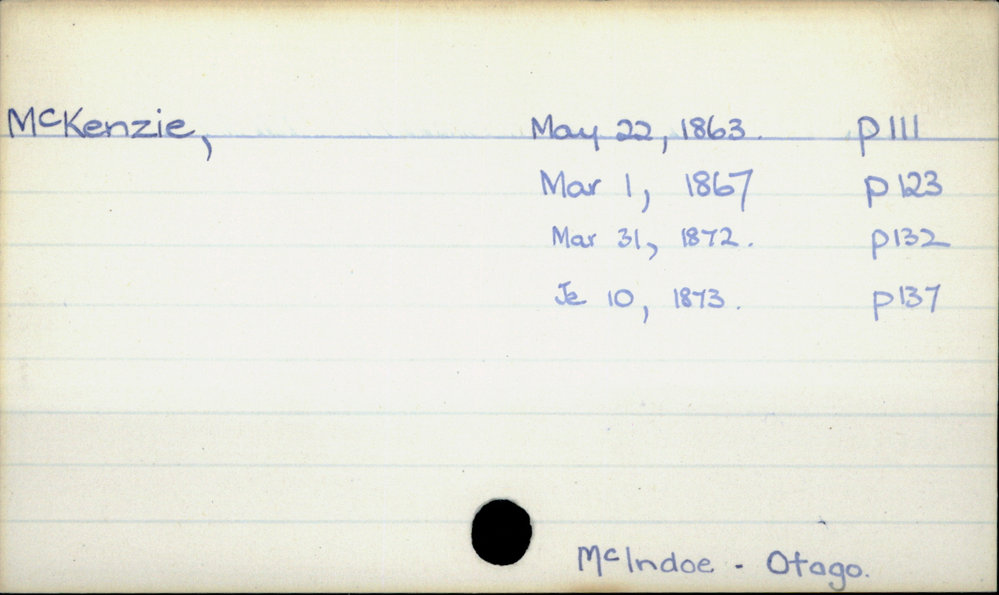 McKenzie, May 22, 1863. p111
Mar 1, 1867 p123
Mar 31, 1872. p132
Je 10, 1873. p137
McIndoe - Otago.